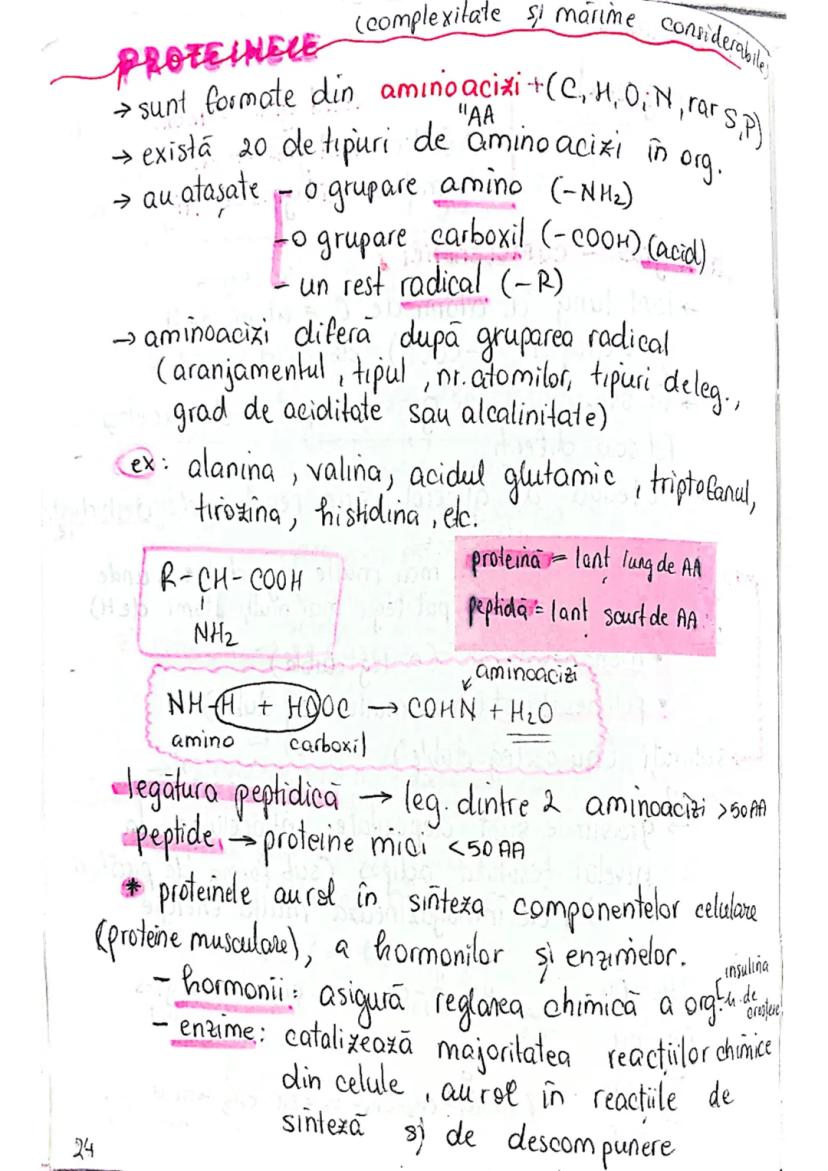 (complexitate și mărime considerabile)
PROTEINELE
→ sunt formate din aminoacizi + (C, H, O, N, rar S, P)
"AA
→ există 20 de tipuri de aminoacizi în org.
→ au atașate - o grupare amino (-NH₂)
- o grupare carboxil (-COOH) (acid)
- un rest radical (-R)
→ aminoacizi diferă după gruparea radical
(aranjamentul, tipul, nr. atomilor, tipuri de leg.,
grad de aciditate sau alcalinitate)
ex: alanina, valina, acidul glutamic, triptofanul,
tirozina, histidina, etc.
R-CH-COOH
NH₂
proteină = lanț lung de AA
peptidă = lanț scurt de AA
aminoacizi
NH-H + HOOC → COHN + H₂O
amino carboxil
legătura peptidică → leg. dintre 2 aminoacizi >50AA
peptide → proteine mici <50 AA
* proteinele au rol în sinteza componentelor celulare
(proteine musculare), a hormonilor și enzimelor.
insulina
- hormonii: asigură reglarea chimică a org. h. de creștere
- enzime: catalizează majoritatea reacțiilor chimice
din celule, au rol în reacțiile de
sinteză și de descompunere
24